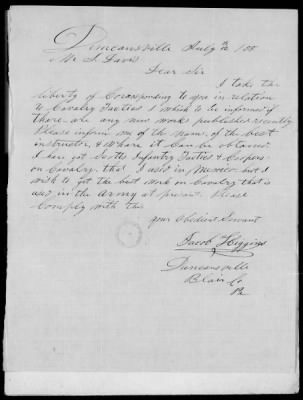 Duncansville July 20 / 55
Mr. J. Davis
Dear Sir
I take the
liberty of Coresponding to you in relation
to Cavalry Tactics I wish to be informed if
there are any new works published recently
Please inform me of the name of the best
instructor, & where it can be obtained
I have got Scotts Infantry Tactics & Coopers
on Cavalry, that I used in Mexico but I
wish to get the best work on Cavalry that is
used in the Army at present. Please
Comply with this
your Obedient Servant
Jacob Higgins
Duncansville
Blair Co
Pa